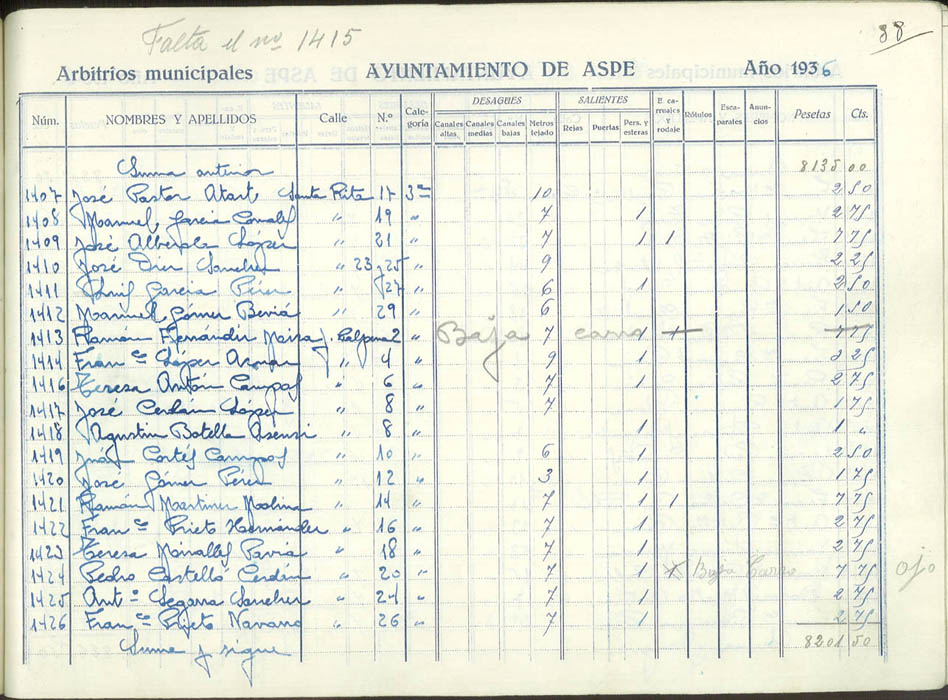 Falta el nº 1415
88
Arbitrios municipales AYUNTAMIENTO DE ASPE Año 1936
Núm. NOMBRES Y APELLIDOS Calle N.º Cate-goría DESAGUES Canales altas Canales medias Canales bajas Metros tejado SALIENTES Rejas Puertas Pers. y esteras E ca-rruajes y rodaje Rótulos Esca-parates Anun-cios Pesetas Cts.
Suma anterior 8135 00
1407 José Pastor Atart Santa Rita 17 3ª 10 2 50
1408 Manuel García " 19 " 7 1 2 75
1409 José Alberola López " 21 " 7 1 1 7 75
1410 José Díez Sánchez " 23 y 25 " 9 2 25
1411 García Pérez " 27 " 6 1 2 50
1412 Manuel Gómez Beviá " 29 " 6 1 50
1413 Ramón Fernández J. 2 " Baja 7 carro 1
1414 Franᶜᵒ López Aznar " 4 " 9 1 3 25
1416 Teresa Antón Campos " 6 " 7 1 2 75
1417 José Cerdán López " 8 " 7 1 75
1418 Agustin Botella Asensi " 8 " 1 1 "
1419 Juan Cortés Campos " 10 " 6 1 2 50
1420 José Gómez Pérez " 12 " 3 1 1 75
1421 Ramón Martinez Molina " 14 " 7 1 1 7 75
1422 Franᶜᵒ Prieto Hernández " 16 " 7 1 2 75
1423 Teresa Miralles Pavia " 18 " 7 1 2 75
1424 Pedro Castelló Cerdán " 20 " 7 1 1 Baja Carro 7 75 ojo
1425 Antº Segarra Sánchez " 24 " 7 1 2 75
1426 Franᶜᵒ Prieto Navarro " 26 " 7 1 2 75
Suma y sigue 8201 50